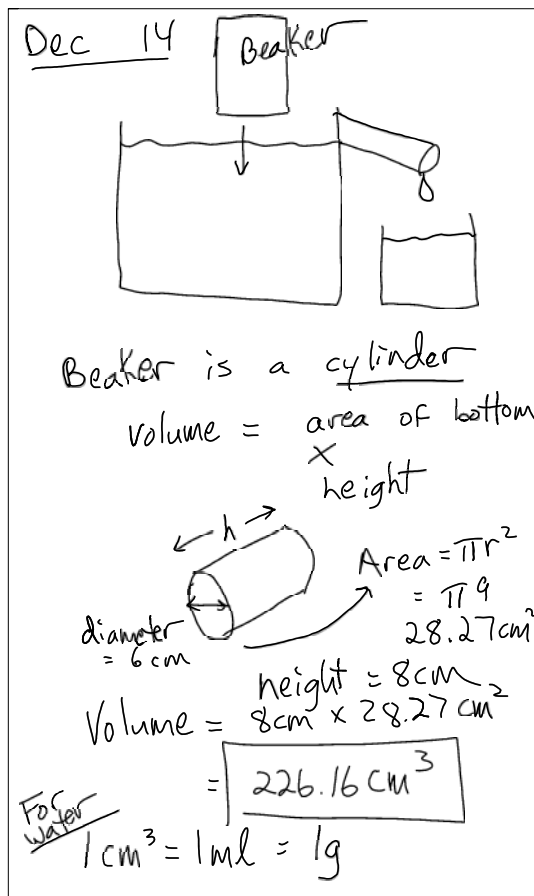 Dec 14
Beaker
Beaker is a cylinder
volume = area of bottom
×
height
h
Area = πr²
= π9
28.27cm²
diameter
= 6cm
height = 8cm
Volume = 8cm × 28.27cm²
= 226.16 cm³
For
water
1cm³ = 1ml = 1g